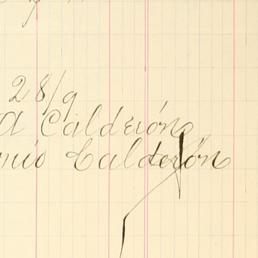 28/9
A Calderón
nio Calderón